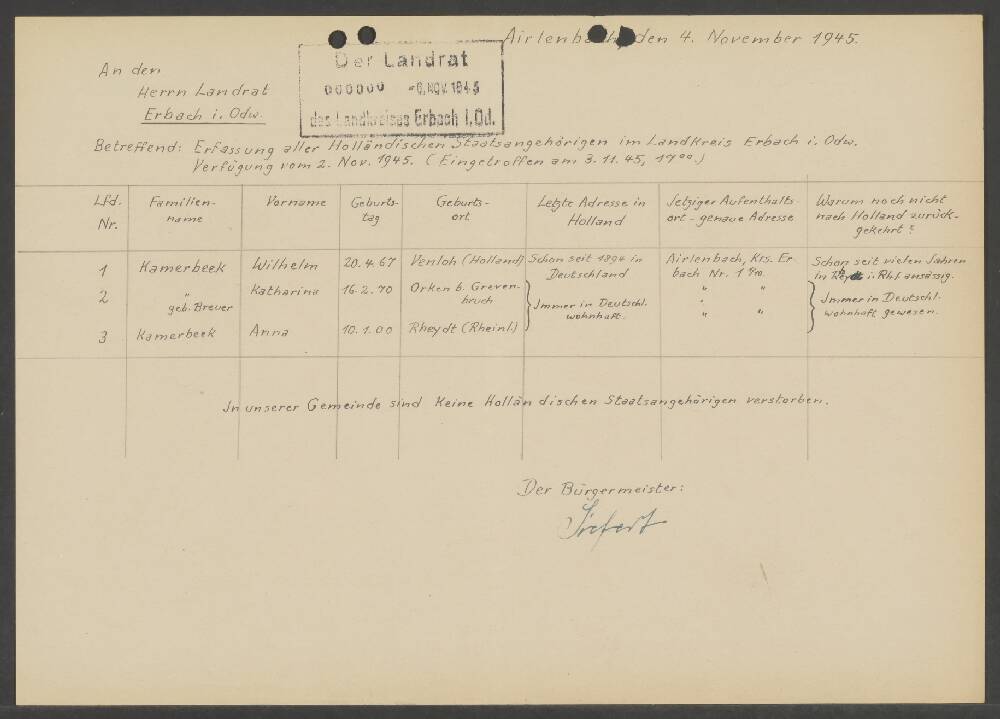 Airlenbach, den 4. November 1945.
Der Landrat
000000 -6. NOV. 1945
des Landkreises Erbach i. Od.
An den
Herrn Landrat
Erbach i. Odw.
Betreffend: Erfassung aller Holländischen Staatsangehörigen im Landkreis Erbach i. Odw.
Verfügung vom 2. Nov. 1945. (Eingetroffen am 3.11.45, 17⁰⁰.)
Lfd. Nr. | Familien-name | Vorname | Geburts-tag | Geburts-ort | Letzte Adresse in Holland | Jetziger Aufenthalts-ort - genaue Adresse | Warum noch nicht nach Holland zurück-gekehrt?
1 | Kamerbeek | Wilhelm | 20.4.67 | Venloh (Holland) | Schon seit 1894 in Deutschland | Airlenbach, Krs. Er-bach Nr. 1 | Schon seit vielen Jahren in Rheydt i. Rhl. ansässig.
2 | " geb. Breuer | Katharina | 16.2.70 | Orken b. Greven-bruch | Immer in Deutschl. wohnhaft. | " " | Immer in Deutschl. wohnhaft gewesen.
3 | Kamerbeek | Anna | 10.1.00 | Rheydt (Rheinl.) | " "
In unserer Gemeinde sind keine Holländischen Staatsangehörigen verstorben.
Der Bürgermeister:
Siefert